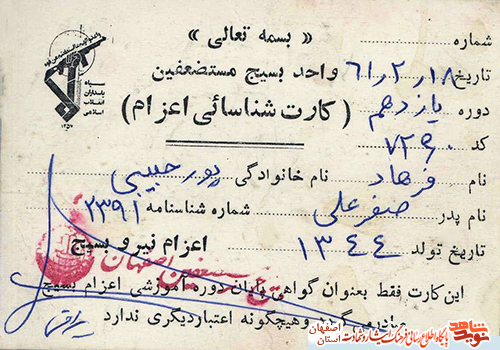 « بسمه تعالی »
شماره
سپاه
پاسداران
انقلاب
اسلامی
تاریخ ۶۱/۲/۱۸ واحد بسیج مستضعفین
دوره یازدهم (کارت شناسائی اعزام)
کد ۷۲۹۰
نام فرهاد نام خانوادگی پور حبیبی
نام پدر صفرعلی شماره شناسنامه ۲۳۹۱
تاریخ تولد ۱۳۴۴ اعزام نیرو بسیج
مستضعفین اصفهان
این کارت فقط بعنوان گواهی پایان دوره آموزشی اعزام بسیج
وهیچگونه اعتباردیگری ندارد
نوید شاهد
اصفهان
پایگاه اطلاع رسانی فرهنگ ایثار و شهادت استان